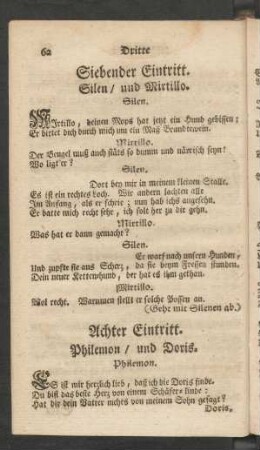 62 Dritte
Siebender Eintritt.
Silen / und Mirtillo.
Silen.
Mirtillo, deinen Mops hat jetzt ein Hund gebissen;
Er bittet dich durch mich um ein Maß Brandtewein.
Mirtillo.
Der Bengel muß auch stäts so dumm und närrisch seyn!
Wo ligt er?
Silen.
Dort bey mir in meinem kleinen Stalle.
Es ist ein rechtes Loch. Wir andern lachten alle
Im Anfang, als er schrie; nun hab ichs angesehn.
Er batte mich recht sehr, ich solt her zu dir gehn.
Mirtillo.
Was hat er dann gemacht?
Silen.
Er warf nach unsern Hunden,
Und zupfte sie aus Scherz, da sie beym Fressen stunden.
Dein neuer Kettenhund, der hat es ihm gethan.
Mirtillo.
Wol recht. Warumen stellt er solche Possen an.
(Geht mit Silenen ab.)
Achter Eintritt.
Philemon / und Doris.
Philemon.
Es ist mir herzlich lieb, daß ich die Doris finde.
Du bist das beste Herz von einem Schäfers-Kinde:
Hat dir dein Vatter nichts von meinem Sohn gesagt?
Doris.